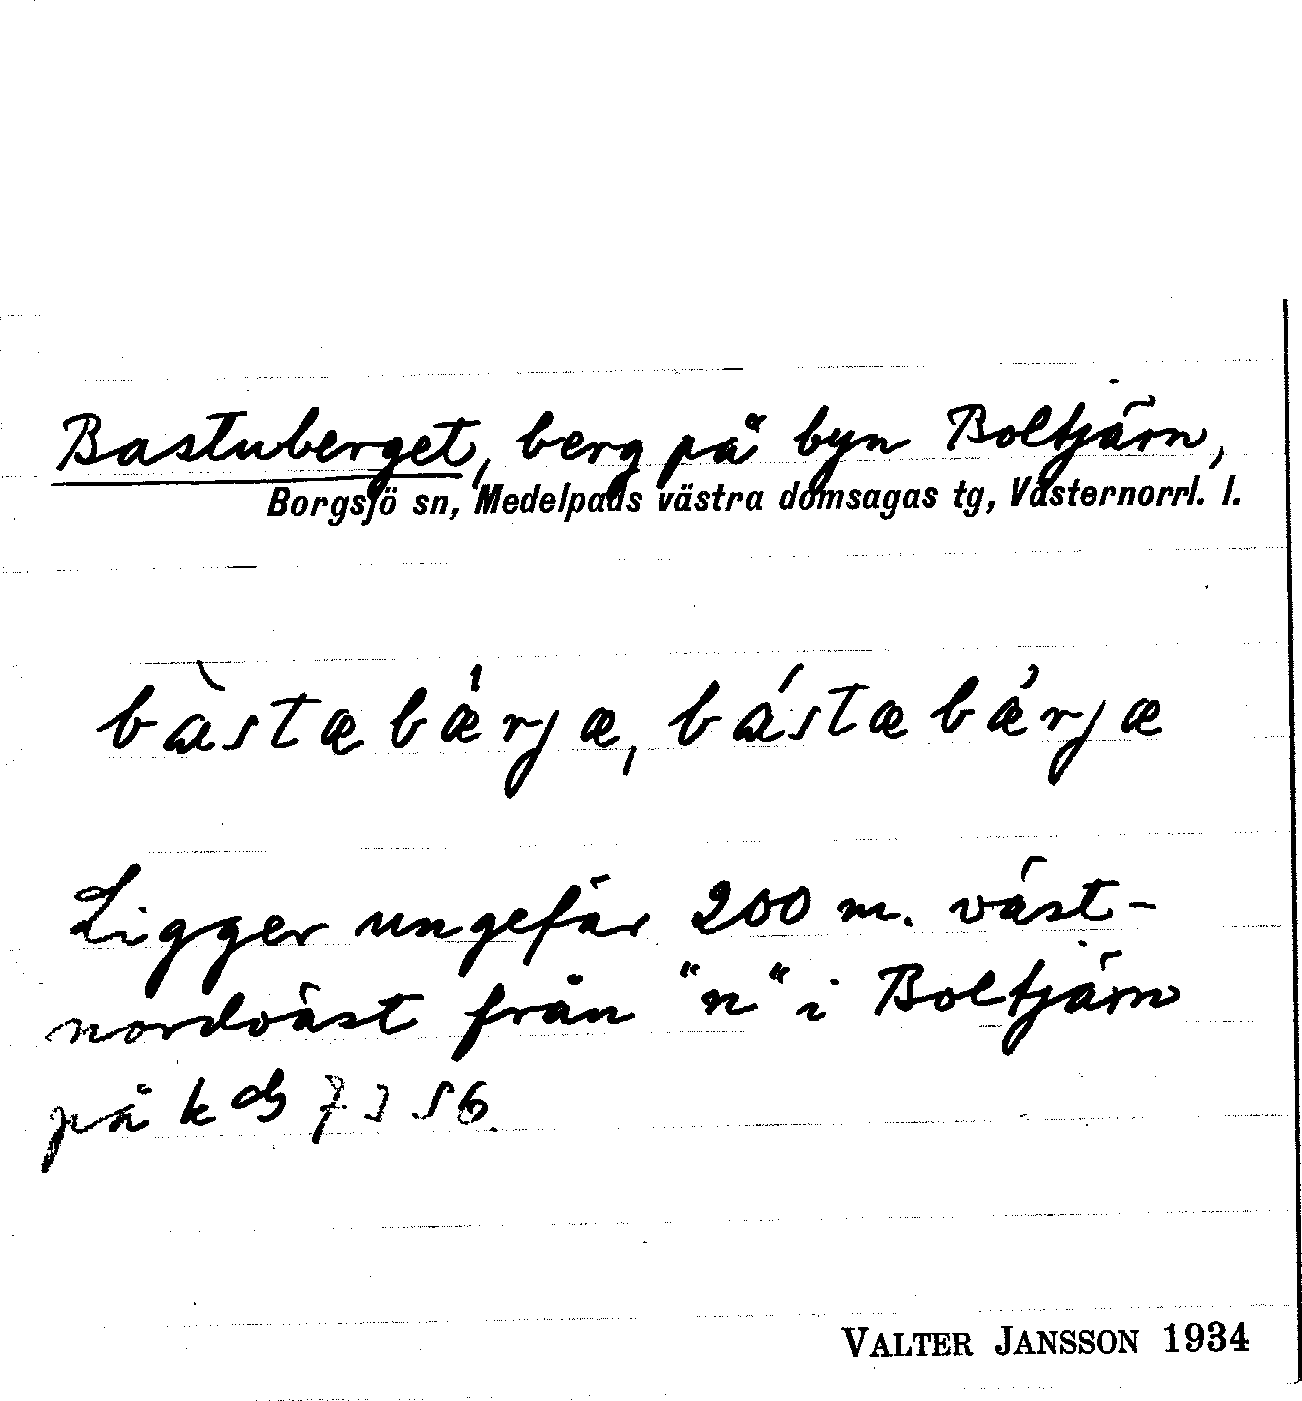 Bastuberget, berg på byn Boltjärn,
Borgsjö sn, Medelpads västra domsagas tg, Västernorrl. l.
bàstæbǽrjæ, bástæbǽrjæ
Ligger ungefär 200 m. väst-
nordväst från "n" i Boltjärn
på k
VALTER JANSSON 1934